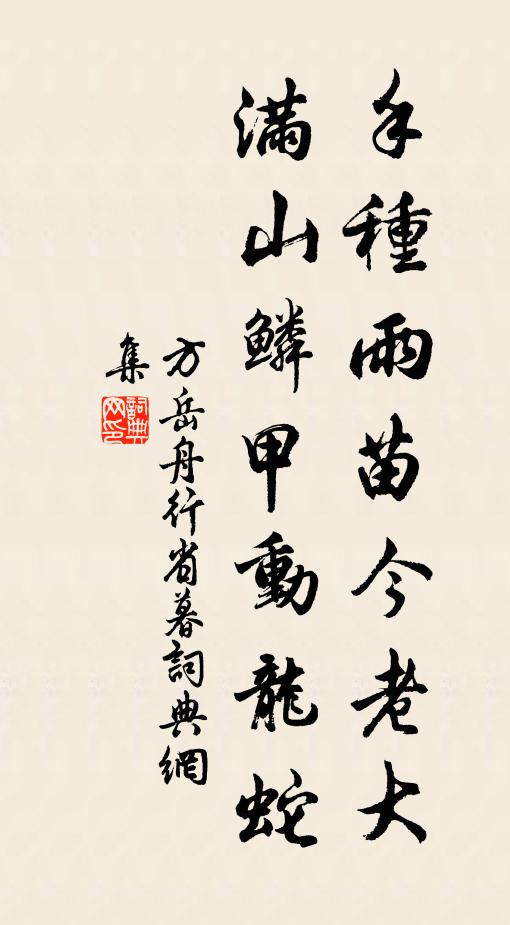 手種雨苗今老大
滿山鱗甲動龍蛇
方岳舟行省墓詞典網
集
詞典
网印